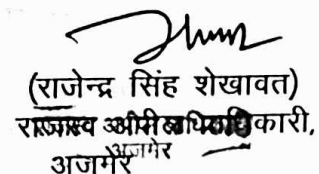 (राजेन्द्र सिंह शेखावत)
राजस्व अपील अधिकारी,
अजमेर
अजमेर